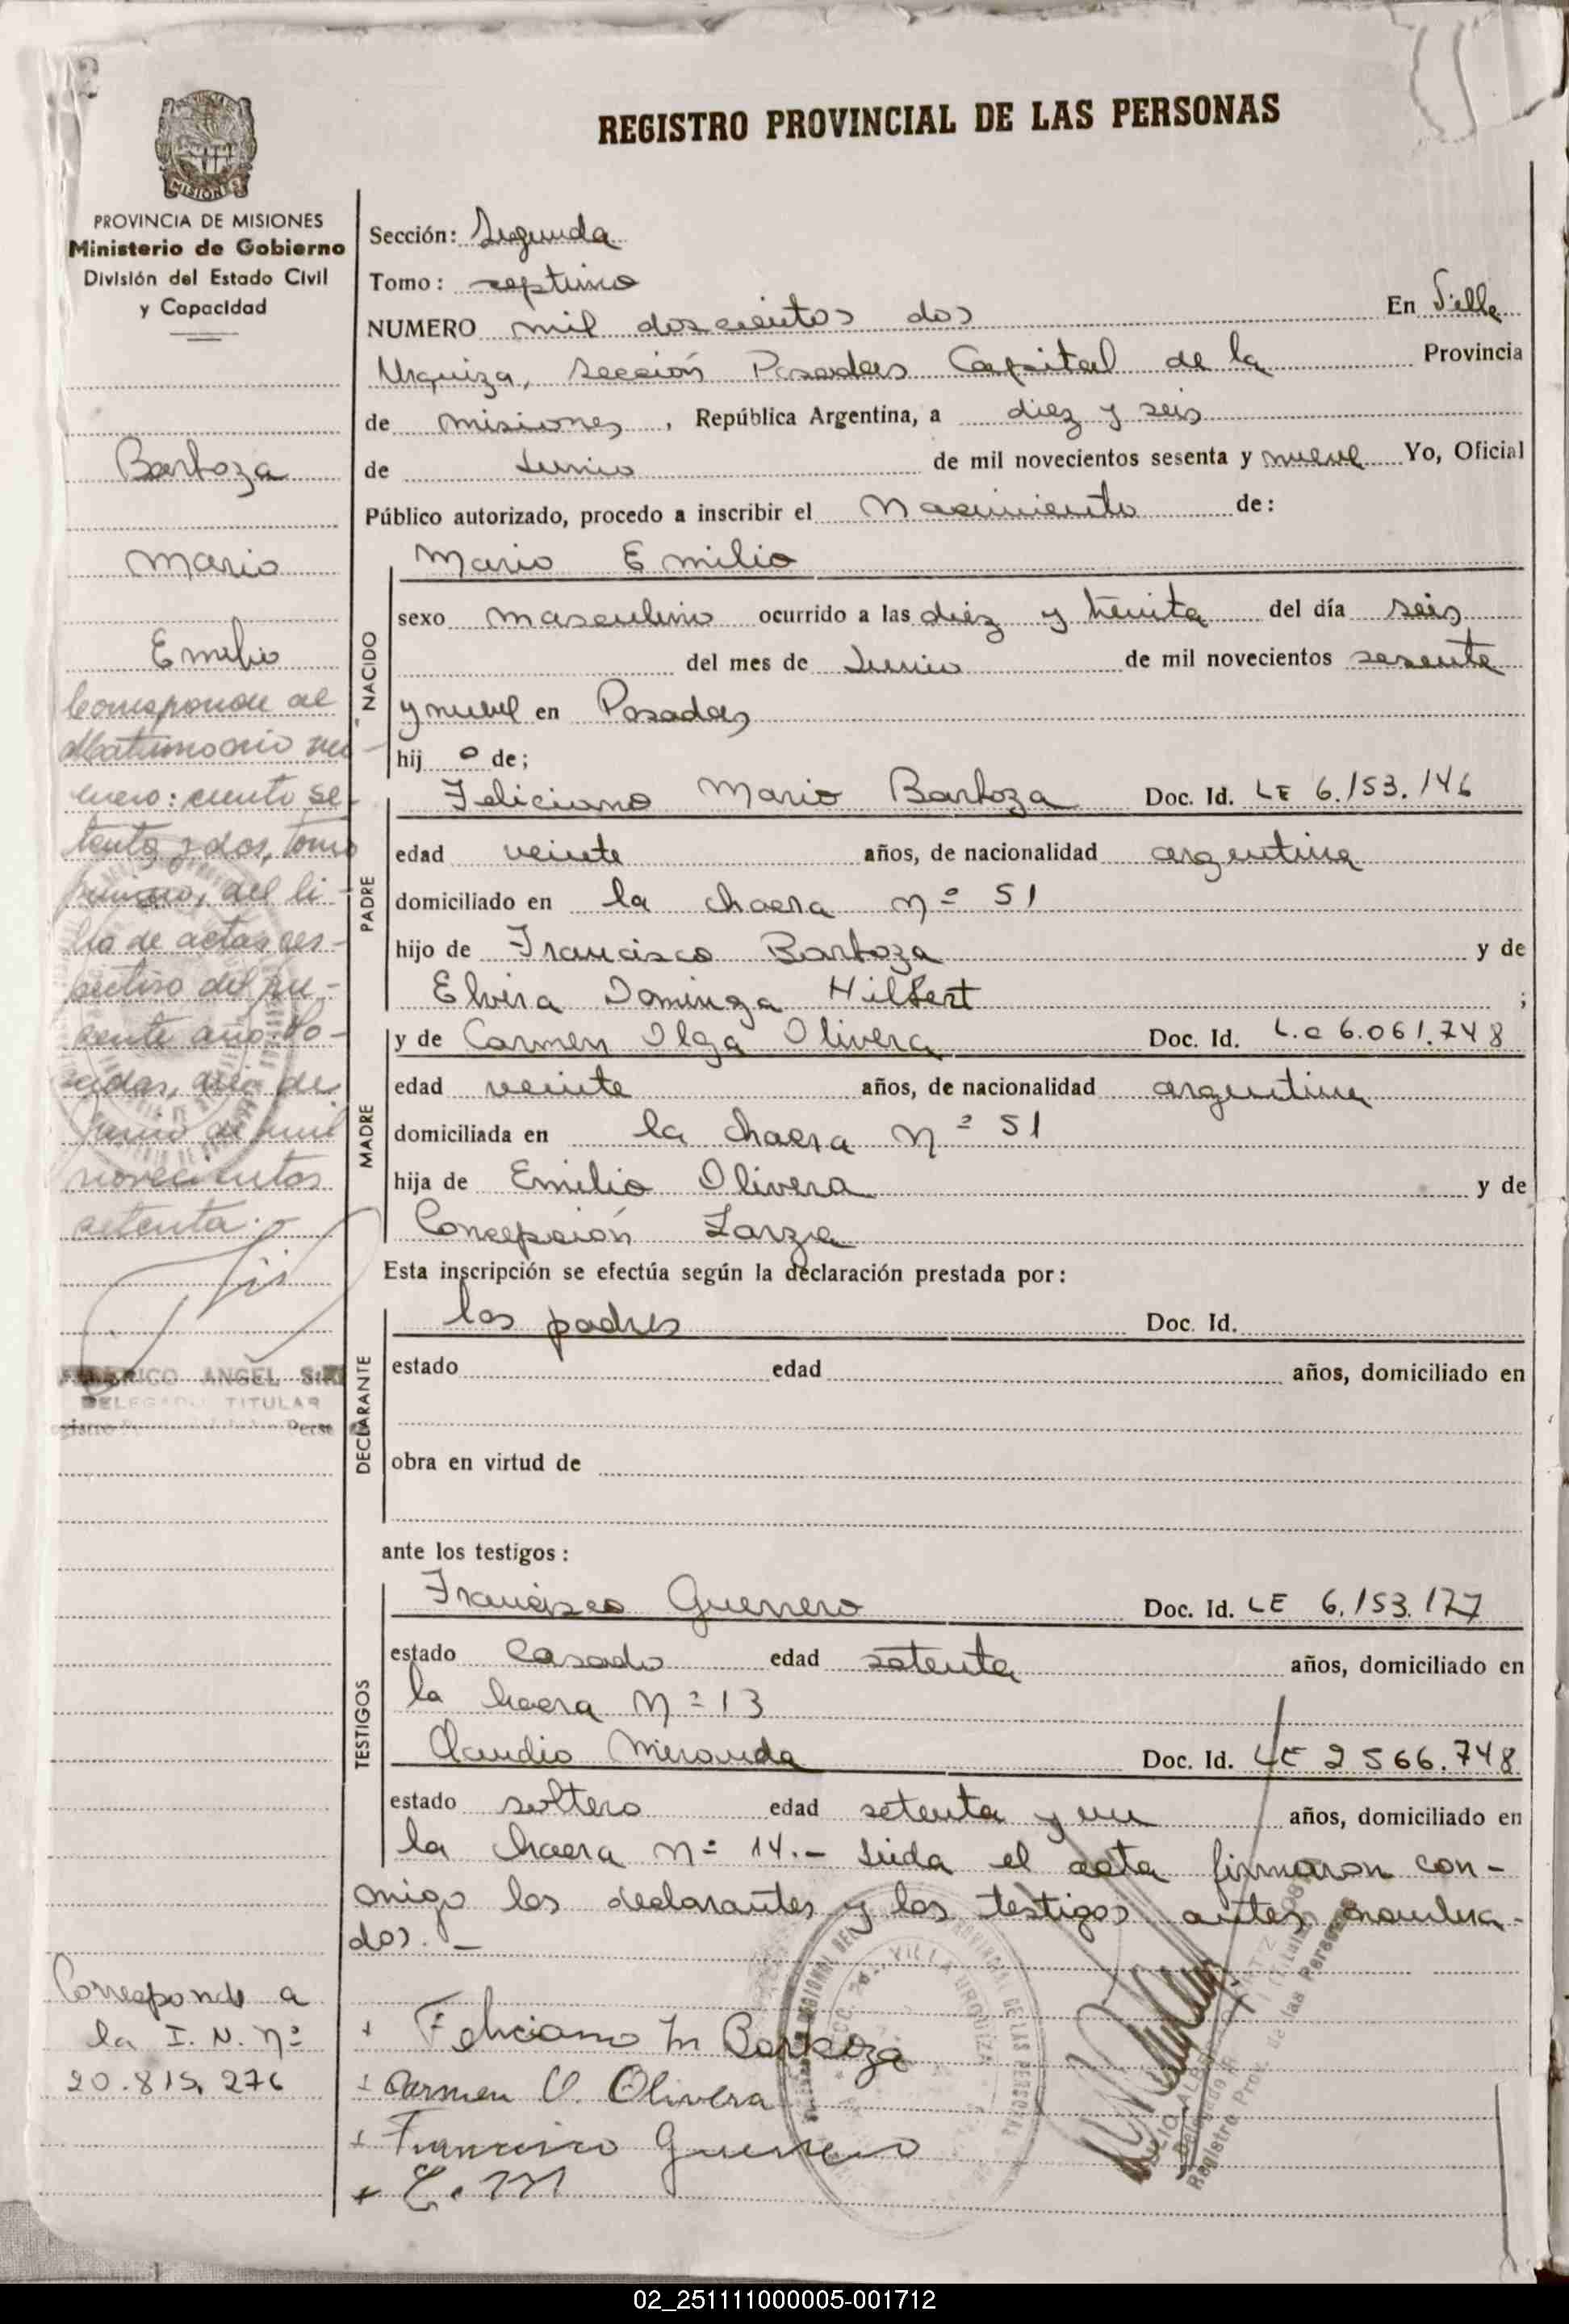 REGISTRO PROVINCIAL DE LAS PERSONAS
MISIONES
PROVINCIA DE MISIONES
Ministerio de Gobierno
División del Estado Civil
y Capacidad
Bartoza
Mario
Emilio
Corresponde al
Matrimonio nu
mero: ciento se-
tenta y dos, tomo
primero, del li-
bro de actas res-
pectivo del pre-
sente año. Po-
sadas, de
Junio de mil
novecientos
setenta.
ANGEL
DELEGADO TITULAR
Corresponde a
la I. N. Nº
20.815.276
Sección: Segunda
Tomo: septimo
NUMERO mil doscientos dos En Villa
Urquiza, Sección Posadas Capital de la Provincia
de Misiones, República Argentina, a diez y seis
de Junio de mil novecientos sesenta y nueve Yo, Oficial
Público autorizado, procedo a inscribir el Nacimiento de:
NACIDO
Mario Emilio
sexo masculino ocurrido a las diez y treinta del día seis
del mes de Junio de mil novecientos sesenta
y nueve en Posadas
hij o de;
PADRE
Feliciano Mario Bartoza Doc. Id. LE 6.153.146
edad veinte años, de nacionalidad argentina
domiciliado en la chacra nº 51
hijo de Francisco Bartoza y de
Elvira Dominga Hilbert ;
MADRE
y de Carmen Olga Olivera Doc. Id. L.C 6.061.748
edad veinte años, de nacionalidad argentina
domiciliada en la chacra nº 51
hija de Emilio Olivera y de
Concepción Zarza
Esta inscripción se efectúa según la declaración prestada por:
DECLARANTE
los padres Doc. Id.
estado edad años, domiciliado en
obra en virtud de
ante los testigos:
TESTIGOS
Francisco Guerrero Doc. Id. LE 6.153.177
estado Casado edad setenta años, domiciliado en
la hacra Nº 13
Claudio Miranda Doc. Id. LE 2566.748
estado soltero edad setenta y un años, domiciliado en
la hacra nº 14.- Leida el acta firmaron con-
migo los declarantes y los testigos antes nombra-
dos.-
+ Feliciano M Bartoza
+ Carmen O. Olivera
+ Francisco Guerrero
+ C. M
VILLA URQUIZA
02_251111000005-001712